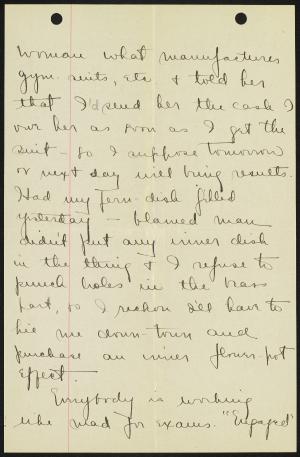 woman what manufactures
gym suits, etc & told her
that I'd send her the cash I
owe her as soon as I got the
suit - so I suppose tomorrow
or next day will bring results.
Had my fern-dish filled
yesterday - blamed man
didn't put any inner dish
in the thing & I refuse to
punch holes in the brass
part, so I reckon I'll have to
hie me down-town and
purchase an inner flower-pot
effect.
Everybody is working
like mad for exams. "Engaged"